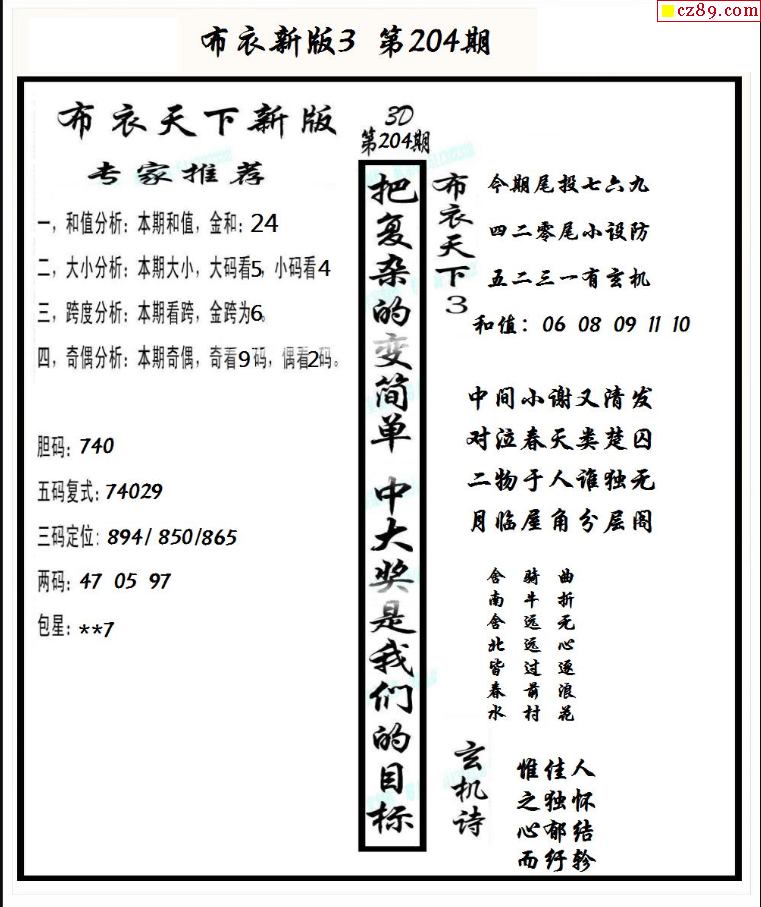 cz89.com
布衣新版3 第204期
布衣天下新版
专家推荐
一，和值分析：本期和值，金和：24
二，大小分析：本期大小，大码看5，小码看4
三，跨度分析：本期看跨，金跨为6。
四，奇偶分析：本期奇偶，奇看9码，偶看2码。
胆码：740
五码复式：74029
三码定位：894/ 850/865
两码：47 05 97
包星：**7
3D
第204期
把复杂的变简单 中大奖是我们的目标
布衣天下3
今期尾投七六九
四二零尾小设防
五二三一有玄机
和值：06 08 09 11 10
中间小谢又清发
对泣春天类楚囚
二物于人谁独无
月临屋角分层阁
舍南舍北皆春水
骑牛远远过前村
曲折无心逐浪花
玄机诗
惟佳人
之独怀
心郁结
而纡轸